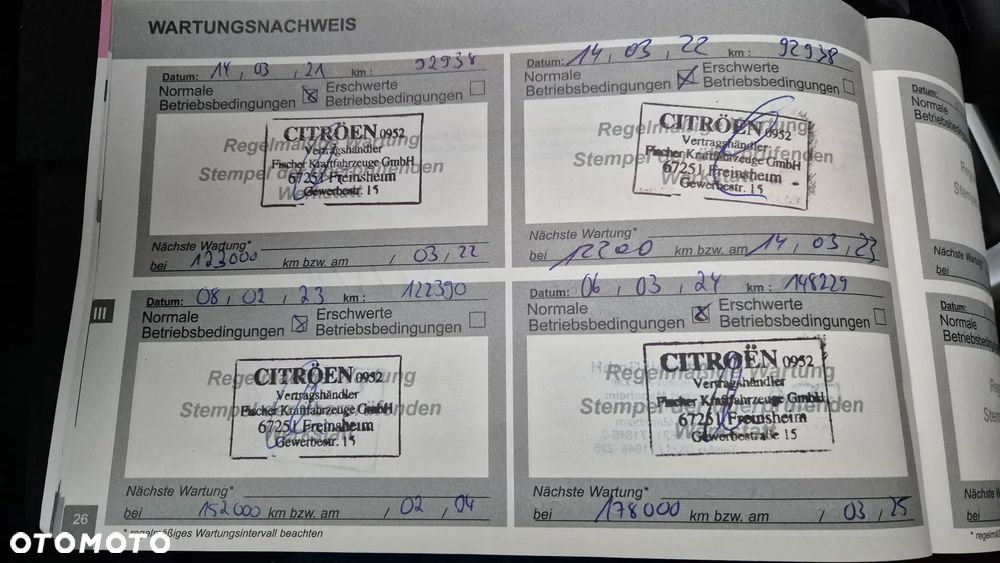 WARTUNGSNACHWEIS
Datum: 14, 03, 21 km: 92938
Normale Betriebsbedingungen ☒ Erschwerte Betriebsbedingungen ☐
Regelmäßige Wartung
Stempel der überprüfenden
Werkstatt
CITRÖEN 0952
Vertragshändler
Fischer Kraftfahrzeuge GmbH
67251 Freinsheim
Gewerbestr. 15
Nächste Wartung*
bei 123000 km bzw. am / 03, 22
Datum: 14, 03, 22 km: 92938
Normale Betriebsbedingungen ☒ Erschwerte Betriebsbedingungen ☐
Regelmäßige Wartung
Stempel der überprüfenden
Werkstatt
CITRÖEN 0952
Vertragshändler
Fischer Kraftfahrzeuge GmbH
67251 Freinsheim
Gewerbestr. 15
Nächste Wartung*
bei 12200 km bzw. am 14, 03, 23
III
Datum: 08, 02, 23 km: 122390
Normale Betriebsbedingungen ☒ Erschwerte Betriebsbedingungen ☐
Regelmäßige Wartung
Stempel der überprüfenden
Werkstatt
CITRÖEN 0952
Vertragshändler
Fischer Kraftfahrzeuge GmbH
67251 Freinsheim
Gewerbestr. 15
Nächste Wartung*
bei 152000 km bzw. am , 02, 04
Datum: 06, 03, 24 km: 148229
Normale Betriebsbedingungen ☒ Erschwerte Betriebsbedingungen ☐
Regelmäßige Wartung
Stempel der überprüfenden
Werkstatt
CITROËN 0952
Vertragshändler
Fischer Kraftfahrzeuge GmbH
67251 Freinsheim
Gewerbestraße 15
Nächste Wartung*
bei 178000 km bzw. am / 03, 25
26
* regelmäßiges Wartungsintervall beachten
Datum:
Normale
Nächste Wartung
bei
Datum:
Normale
bei
OTOMOTO